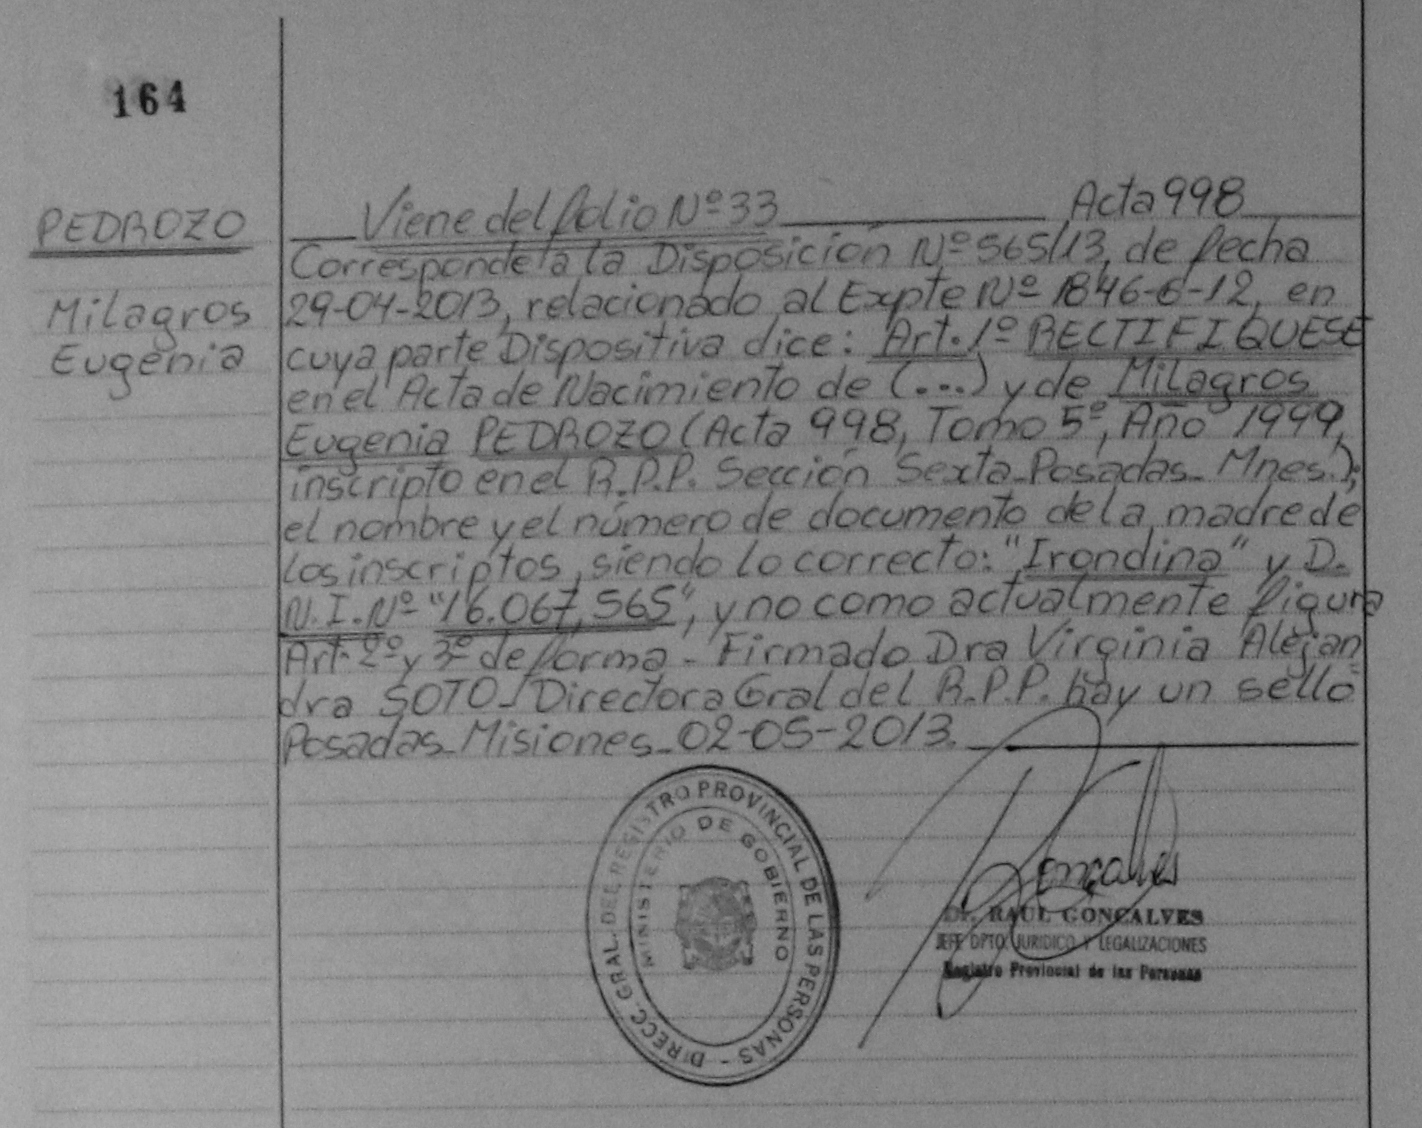 164
PEDROZO
Milagros
Eugenia
Viene del folio Nº 33 Acta 998
Corresponde a la Disposición Nº 565/13, de fecha
29-04-2013, relacionado al Expte Nº 1846-6-12, en
cuya parte Dispositiva dice: Art. 1º RECTIFIQUESE
en el Acta de Nacimiento de (...) y de Milagros
Eugenia PEDROZO (Acta 998, Tomo 5º, Año 1999,
inscripto en el R.P.P. Sección Sexta-Posadas-Mnes.);
el nombre y el número de documento de la madre de
los inscriptos, siendo lo correcto: "Irondina" y D.
N.I. Nº "16.067.565", y no como actualmente figura
Art. 2º y 3º de forma - Firmado Dra Virginia Alejan
dra SOTO - Directora Gral del R.P.P. hay un sello
Posadas-Misiones-02-05-2013.
DIRECC. GRAL. DEL REGISTRO PROVINCIAL DE LAS PERSONAS -
MINISTERIO DE GOBIERNO
Goncalves
Dr. RAUL GONCALVES
JEFE DPTO. JURIDICO Y LEGALIZACIONES
Registro Provincial de las Personas